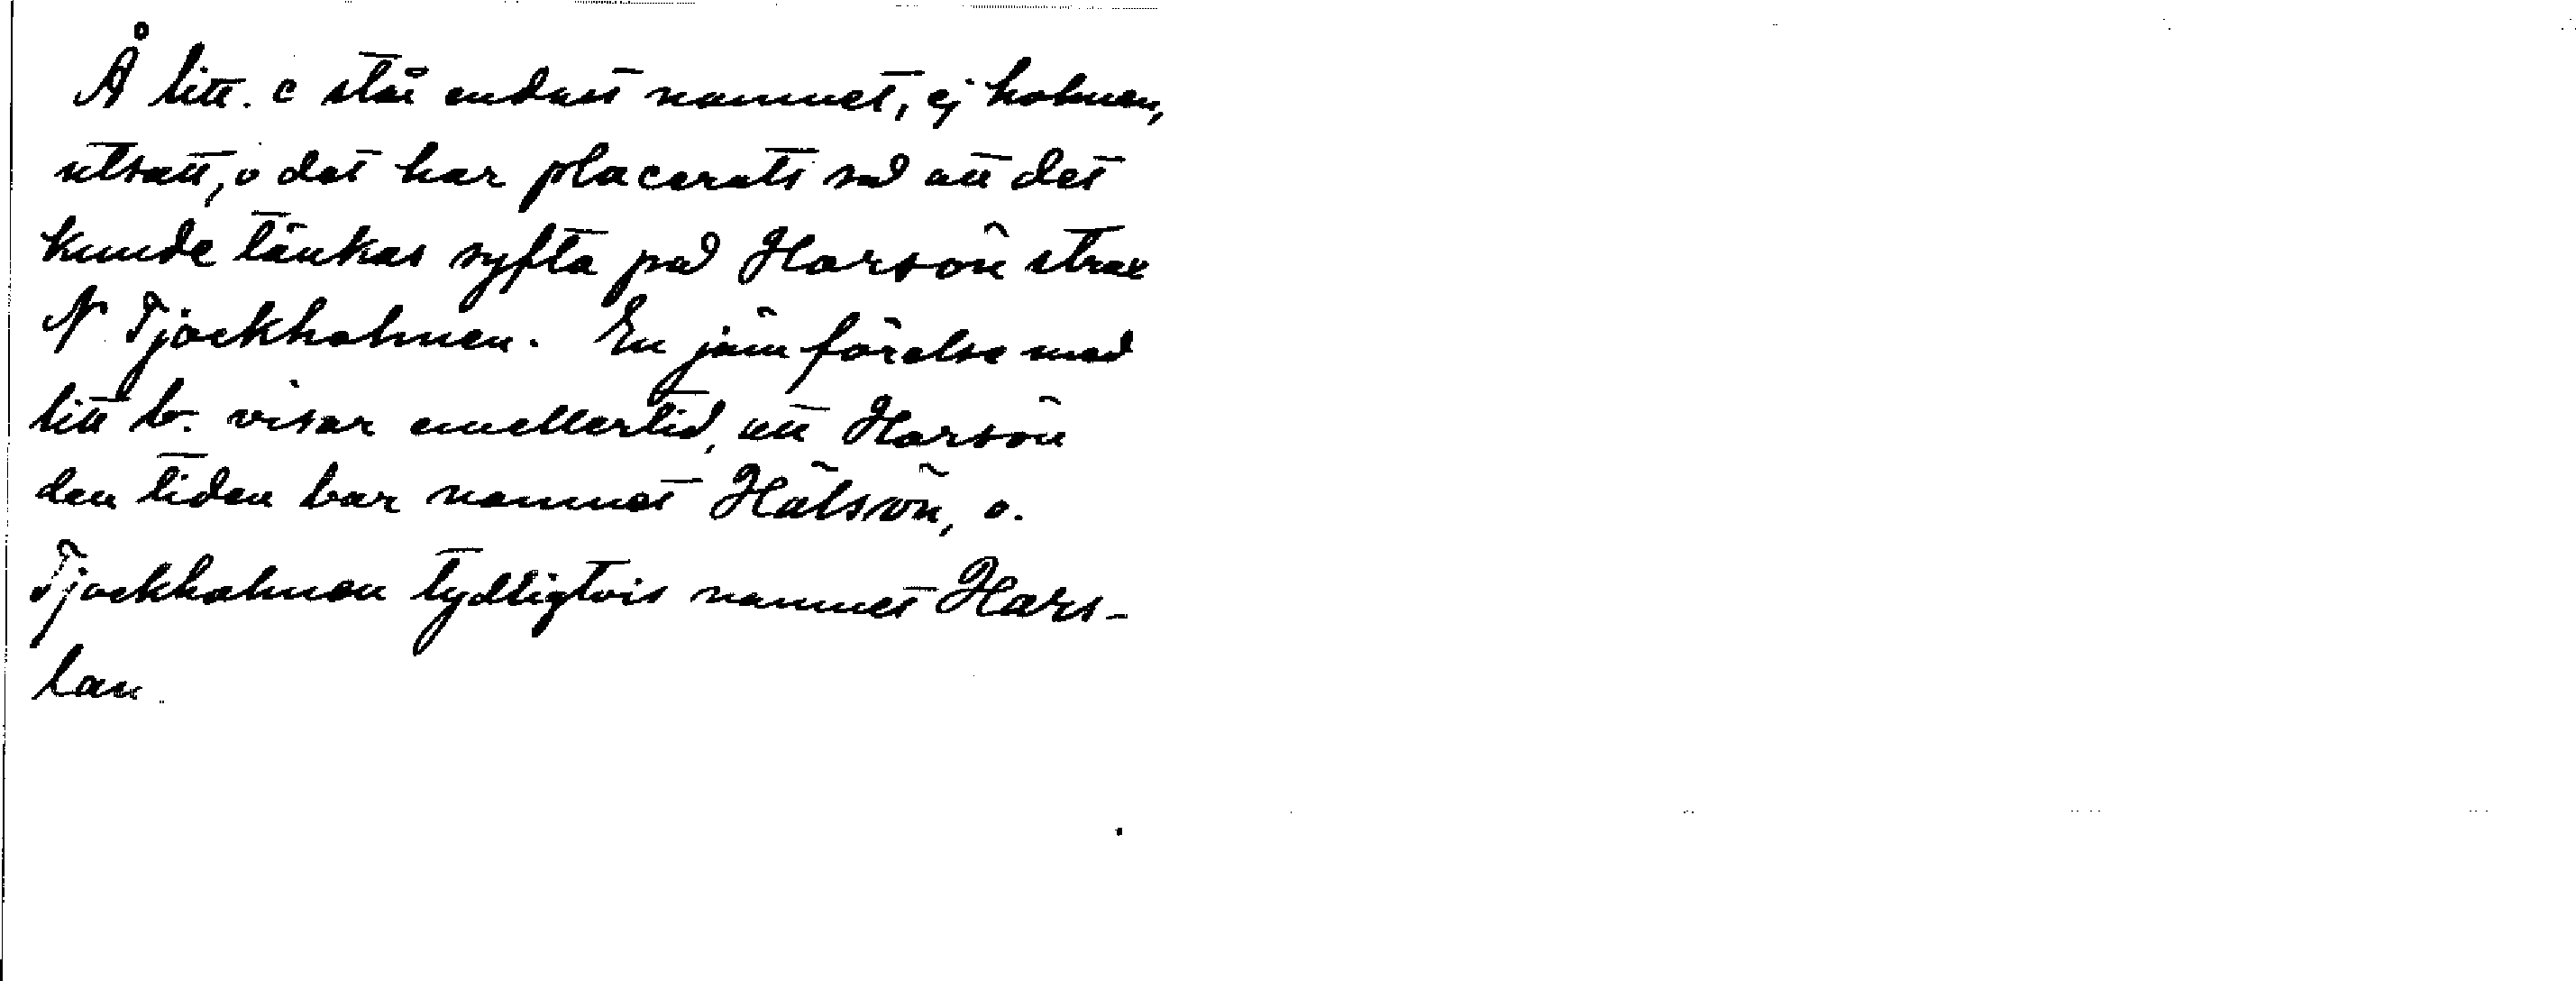 Å litt. c står endast namnet, ej holmen,
utsatt, o det har placerats så att det
kunde tänkas syfta på Harsön strax
N Tjockholmen. En jämförelse med
litt b. visar emellertid, att Harsön
den tiden bar namnet Hälsön, o.
Tjockholmen tydligtvis namnet Hars-
lan.